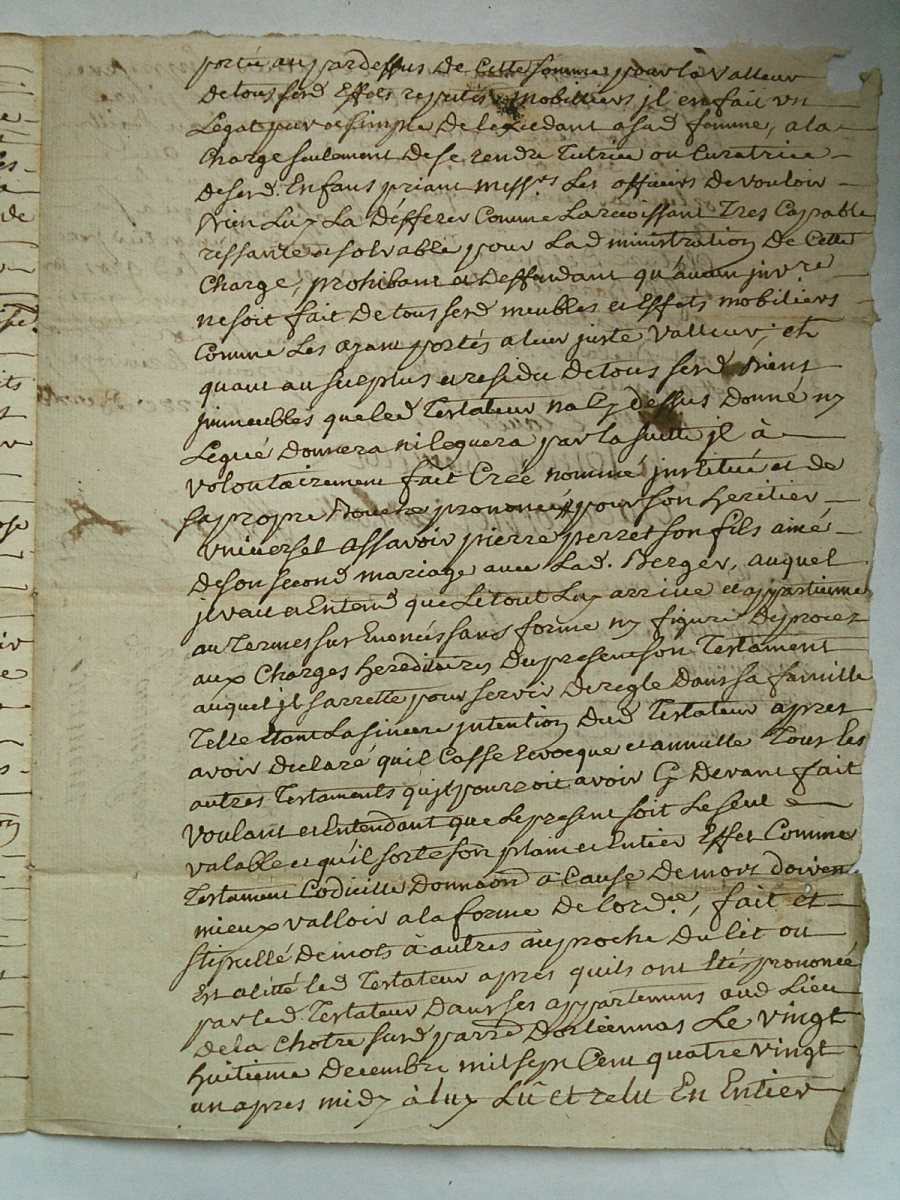 portée au pardessus de cette somme pour la valleur
de tous sesd. Effets reputés mobilliers jl en fait un
Legat pur et simple de lexedant a sad. femme, a la
Charge seulement de se rendre Tutrice ou Curatrice
de sesd. Enfans priant mess.rs Les officiers de vouloir
bien Luy La defferer Comme La connoissant Tres Capable
et solvable pour Ladministration de Cette
Charge, prohibant et deffendant qu'aucun jnv.re
ne soit fait de tous sesd meubles et Effets mobiliers
Comme Les ayant portés a leur juste valleur; et
quant au surplus et residu de tous sesd biens
jmmeubles que led. Testateur na Cy dessus donné ny
Legué donnera ni leguera par la suitte jl à
volontairement fait Créé nommé jnstitué et de
sa propre Bouche prononcé pour son heritier
vniversel assavoir pierre perret son fils ainé
de son second mariage avec Lad. Berger, auquel
jl veut et Entend que Le tout Luy arrive et appartienne
au Termes sus Enoncés sans forme ny figure de procez
aux Charges hereditaires du present son Testament
auquel jl sarrette pour servir de regle dans sa famille
Telle etant La sincere jntention dud Testateur apres
avoir declaré quil Casse revocque et annulle Tous les
autres Testaments qujl pourroit avoir Cy devant fait
voulant et Entendant que Le present soit Le seul
valable et qu'il sorte son plain et Entier Effet Comme
Testament Codicille donnaon à Cause de mort doivent
mieux valloir a la forme de Lord.ce, fait et
stipullé de mots à autres au proche du lit ou
Est alitté led Testateur apres quils ont Etés prononcé
par led Testateur dans ses appartemens aud Lieu
de la Chotre susd parr.
dortiennas Le vingt
huitieme decembre mil sept Cent quatre vingt
un apres midy à luy Lû et relu En Entier